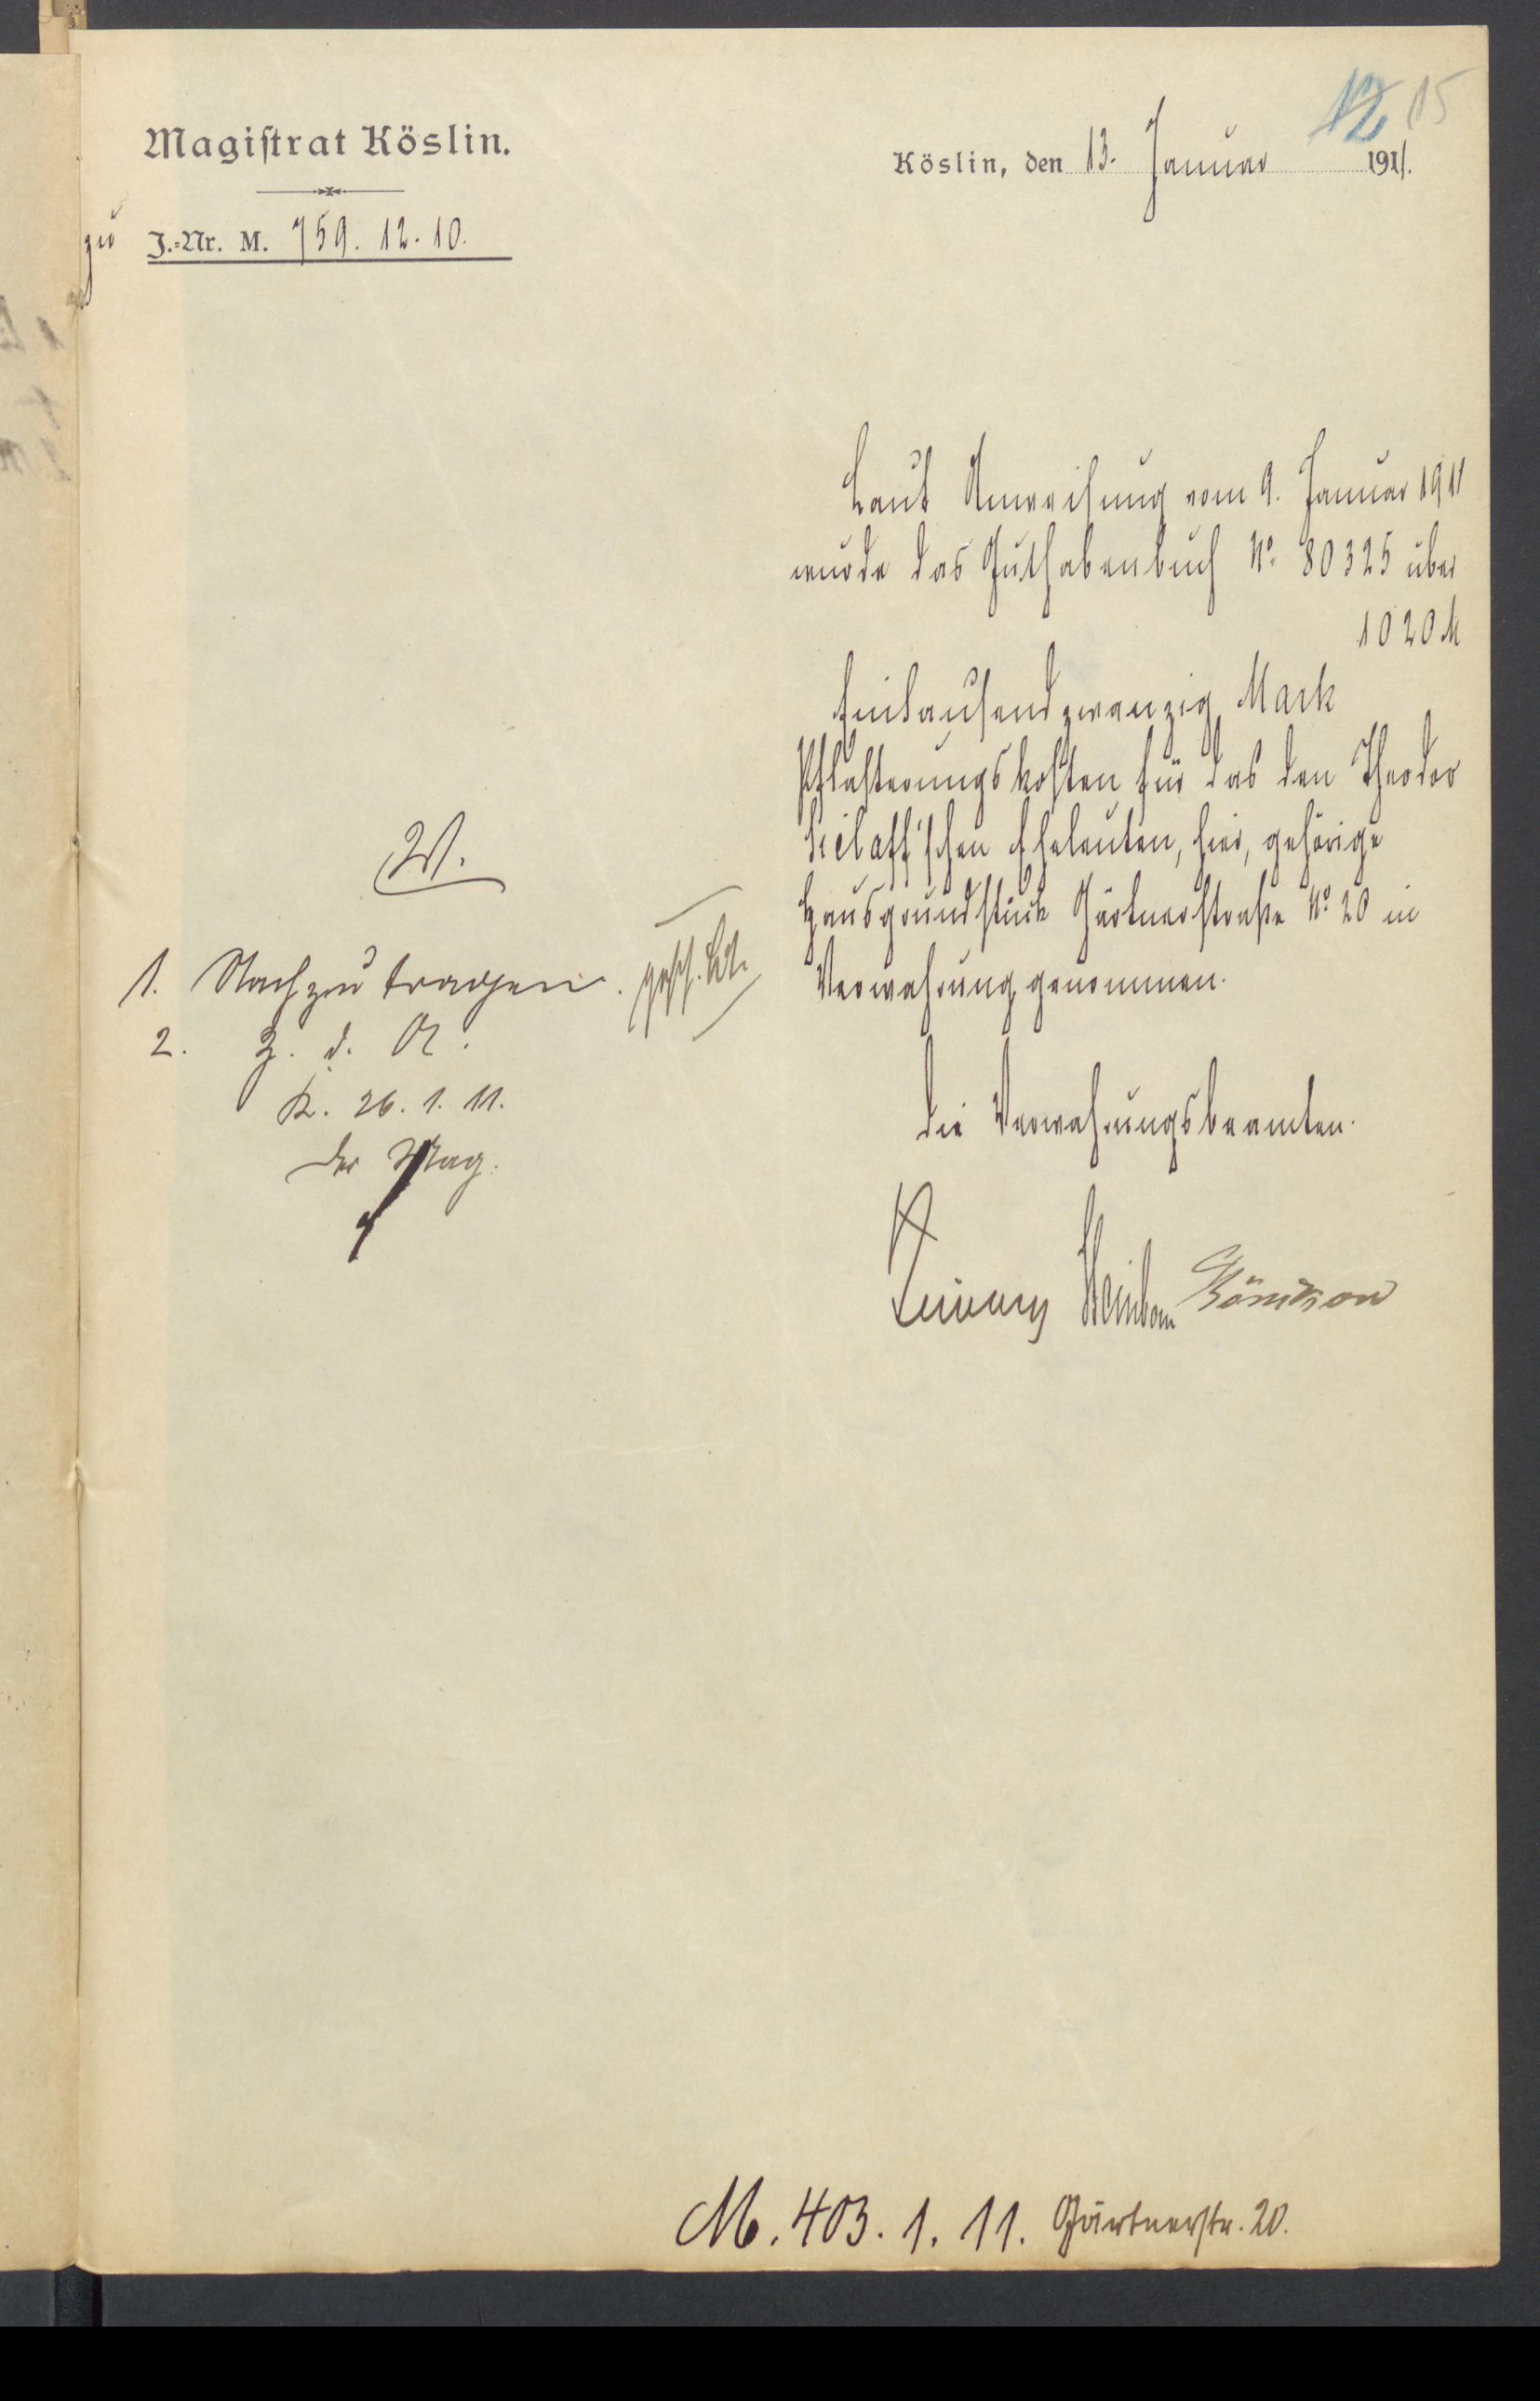 12 15
Magiſtrat Köslin.
Köslin, den 13. Januar 1911.
zu J.-Nr. M. 759. 12. 10.
Laut Anweisung vom 9. Januar 1911
wurde das Guthabenbuch No. 80325 über
1020 M
Eintausendzwanzig Mark
Pflasterungskosten für das den Theodor
Sielaff'schen Eheleuten, hier, gehörige
Hausgrundstück Gärtnerstraße No. 20 in
Verwahrung genommen.
Die Verwahrungsbeamten.
W.
1. Nachzutragen. gesch.
2. Z. d. A.
K. 26. 1. 11.
Der Mag.
M. 403. 1. 11. Gärtnerstr. 20.